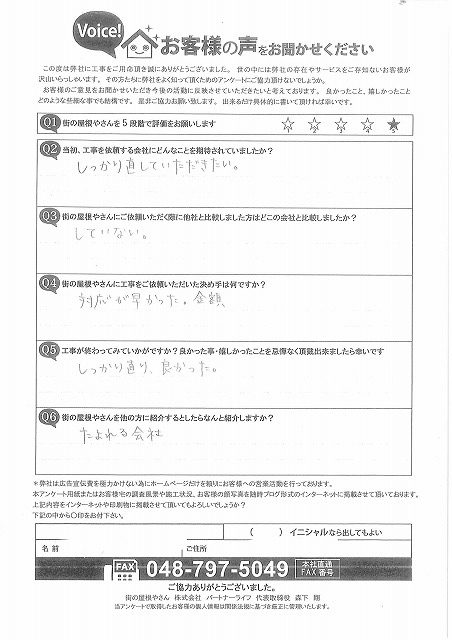 Voice!
お客様の声をお聞かせください
この度は弊社に工事をご用命頂き誠にありがとうございました。世の中には弊社の存在やサービスをご存知ないお客様が
沢山いらっしゃいます。その方たちに弊社をよく知って頂くためのアンケートにご協力頂けないでしょうか。
お客様のご意見をお聞かせいただき今後の活動に反映させていただきたいと考えております。良かったこと、嬉しかったこと
どのような些細な事でも結構です。是非ご協力お願い致します。出来るだけ具体的に書いて頂ければ幸いです。
Q1 街の屋根やさんを5段階で評価をお願いします ☆1 ☆2 ☆3 ☆4 ★5
Q2 当初、工事を依頼する会社にどんなことを期待されていましたか?
しっかり直していただきたい。
Q3 街の屋根やさんにご依頼いただく際に他社と比較しました方はどこの会社と比較しましたか?
していない。
Q4 街の屋根やさんに工事をご依頼いただいた決め手は何ですか?
対応が早かった。金額
Q5 工事が終わってみていかがですか?良かった事・嬉しかったことを忌憚なく頂戴出来ましたら幸いです
しっかり直り、良かった。
Q6 街の屋根やさんを他の方に紹介するとしたらなんと紹介しますか?
たよれる会社
*弊社は広告宣伝費を極力かけない為にホームページだけを頼りにお客様への営業活動を行っております。
本アンケート用紙またはお客様宅の調査風景や施工状況、お客様の顔写真を随時ブログ形式のインターネットに掲載させて頂いております。
上記内容をインターネットや印刷物に掲載させて頂いてもよろしいでしょうか?
下記の中から〇印をお付下さい。
( ) イニシャルなら出してもよい
名前 ご住所
FAX 048-797-5049 本社直通 FAX番号
ご協力ありがとうございました。
街の屋根やさん 株式会社 パートナーライフ 代表取締役 森下 翔
当アンケートで取得したお客様の個人情報は関係法令に基づき厳正に管理いたします。